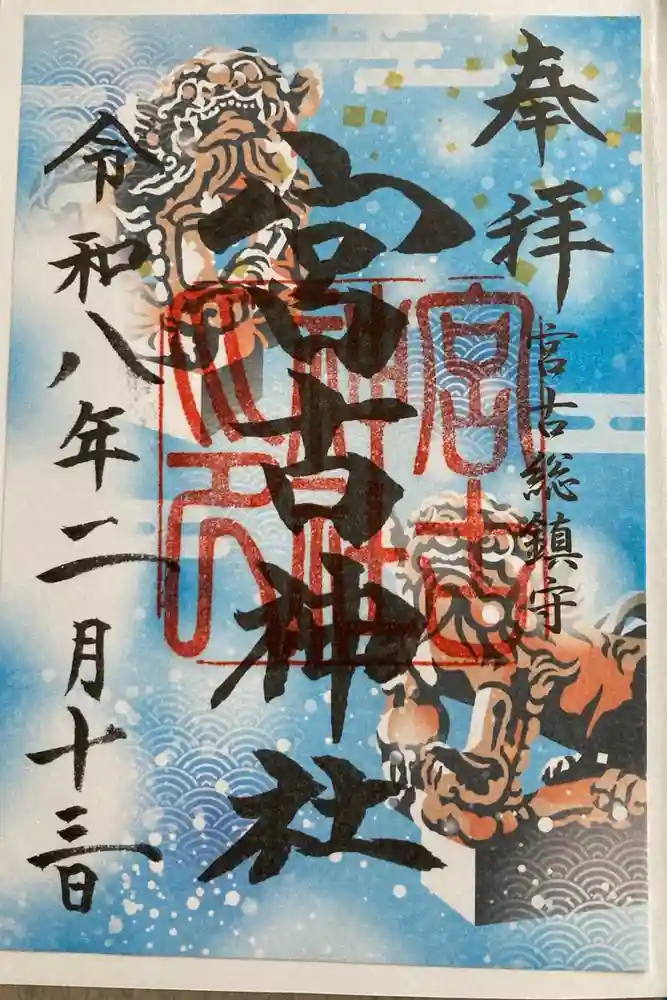 奉拝
宮古総鎮守
宮古神社
宮古神社之印
令和八年二月十三日